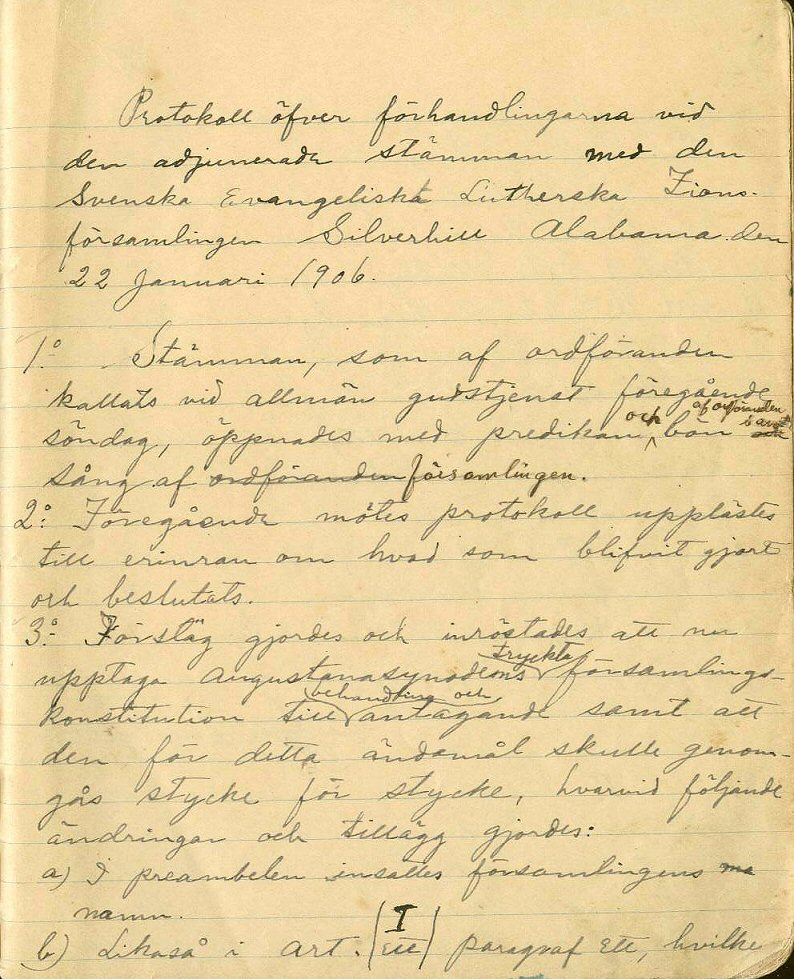 Protokoll öfver förhandlingarna vid
den adjunerade stämman med den
Svenska Evangeliska Lutherska Zions-
församlingen Silverhill Alabama den
22 Januari 1906.
1º. Stämman, som af ordföranden
kallats vid allmän gudstjenst föregående
söndag, öppnades med predikan, och bön af ordföranden samt och
sång af ordföranden församlingen.
2º. Föregående mötes protokoll upplästes
till erinran om hvad som blifvit gjort
och beslutats.
3º. Förslag gjordes och inröstades att nu
upptaga Augustanasynodens tryckta församlings-
konstitution till behandling och antagande samt att
den för detta ändamål skulle genom-
gås stycke för stycke, hvarvid följande
ändringar och tillägg gjordes:
a) I preambelen insattes församlingens na
namn.
b) Likaså i art. I (Ett) paragraf Ett, hvilke